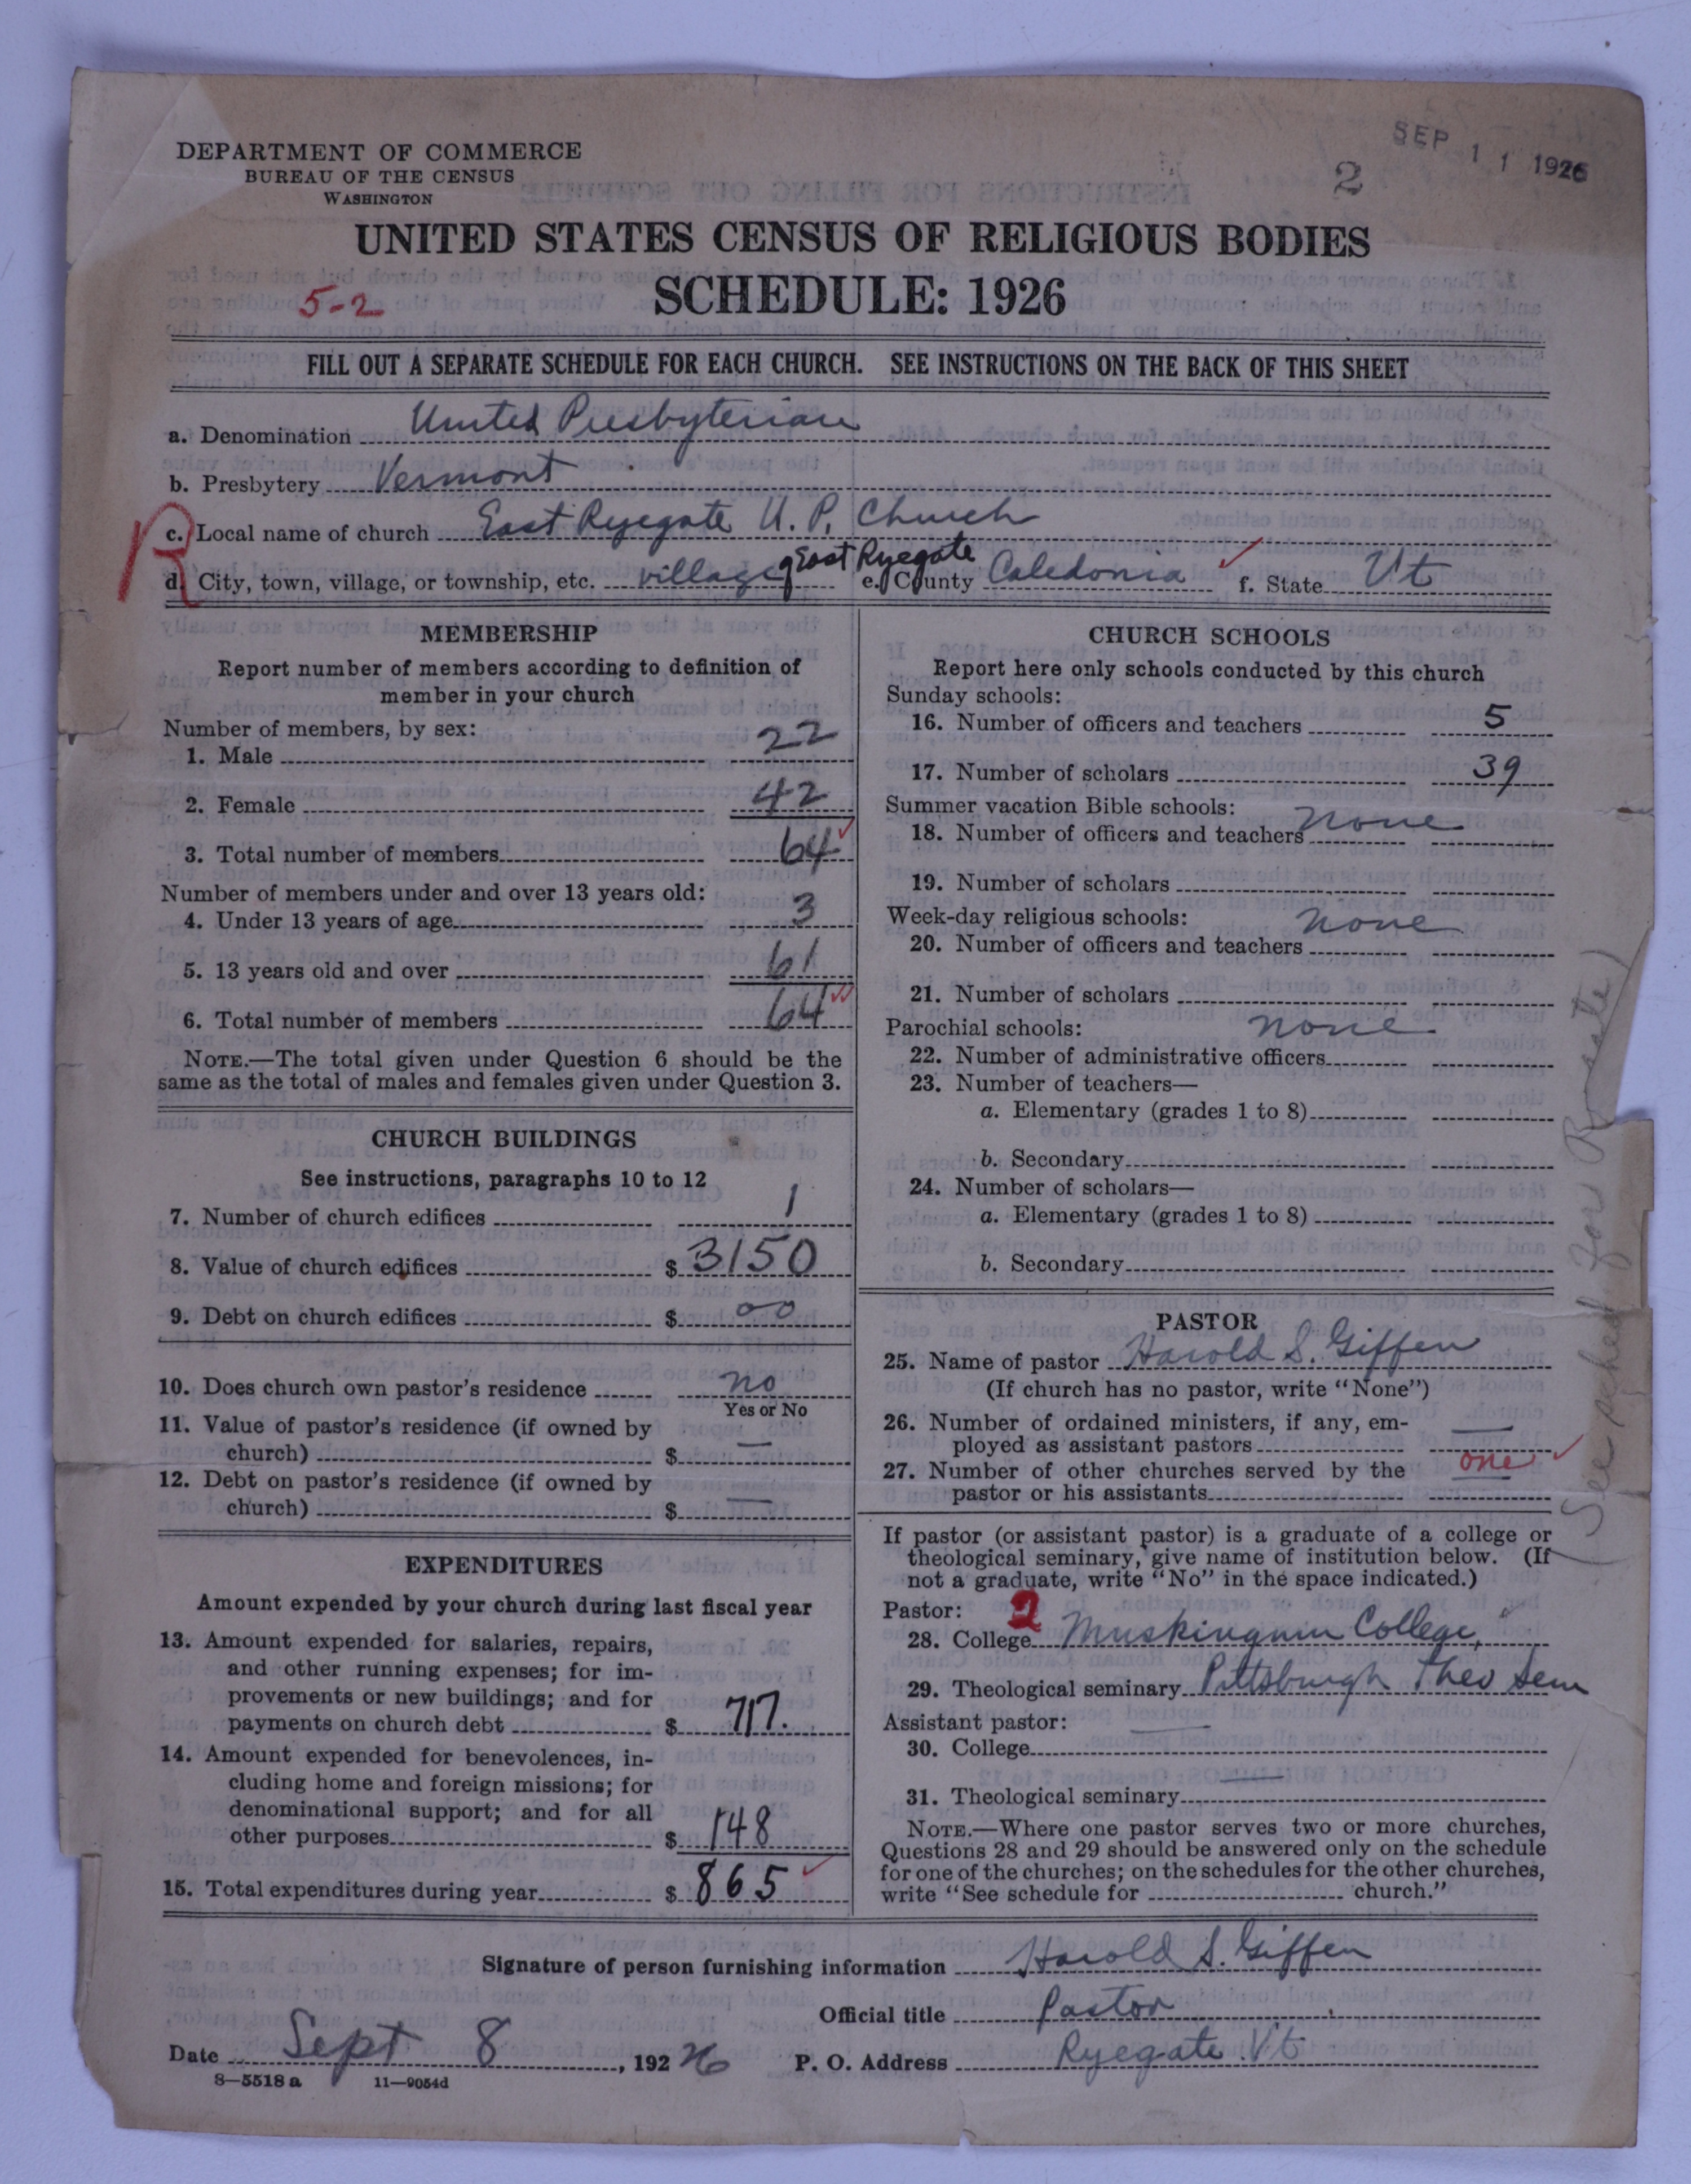 SEP 11 1926
2
DEPARTMENT OF COMMERCE
BUREAU OF THE CENSUS
WASHINGTON
UNITED STATES CENSUS OF RELIGIOUS BODIES
5-2
SCHEDULE: 1926
FILL OUT A SEPARATE SCHEDULE FOR EACH CHURCH. SEE INSTRUCTIONS ON THE BACK OF THIS SHEET
a. Denomination United Presbyterian
b. Presbytery Vermont
R
c. Local name of church East Ryegate U. P. Church
d. City, town, village, or township, etc. village of East Ryegate e. County Caledonia f. State Vt
MEMBERSHIP
Report number of members according to definition of
member in your church
Number of members, by sex:
1. Male 22
2. Female 42
3. Total number of members 64
Number of members under and over 13 years old:
4. Under 13 years of age 3
5. 13 years old and over 61
6. Total number of members 64
NOTE.—The total given under Question 6 should be the
same as the total of males and females given under Question 3.
CHURCH BUILDINGS
See instructions, paragraphs 10 to 12
7. Number of church edifices 1
8. Value of church edifices $ 3150
9. Debt on church edifices $ 00
10. Does church own pastor's residence no
Yes or No
11. Value of pastor's residence (if owned by
church) $ —
12. Debt on pastor's residence (if owned by
church) $ —
EXPENDITURES
Amount expended by your church during last fiscal year
13. Amount expended for salaries, repairs,
and other running expenses; for im-
provements or new buildings; and for
payments on church debt $ 717.
14. Amount expended for benevolences, in-
cluding home and foreign missions; for
denominational support; and for all
other purposes $ 148
15. Total expenditures during year $ 865
CHURCH SCHOOLS
Report here only schools conducted by this church
Sunday schools:
16. Number of officers and teachers 5
17. Number of scholars 39
Summer vacation Bible schools:
18. Number of officers and teachers none
19. Number of scholars
Week-day religious schools: none
20. Number of officers and teachers
21. Number of scholars
Parochial schools: none
22. Number of administrative officers
23. Number of teachers—
a. Elementary (grades 1 to 8)
b. Secondary
24. Number of scholars—
a. Elementary (grades 1 to 8)
b. Secondary
PASTOR
25. Name of pastor Harold S. Giffen
(If church has no pastor, write "None")
26. Number of ordained ministers, if any, em-
ployed as assistant pastors —
27. Number of other churches served by the one
pastor or his assistants
If pastor (or assistant pastor) is a graduate of a college or
theological seminary, give name of institution below. (If
not a graduate, write "No" in the space indicated.)
Pastor: 2
28. College Muskingum College,
29. Theological seminary Pittsburgh Theo Sem
Assistant pastor: —
30. College
31. Theological seminary —
NOTE.—Where one pastor serves two or more churches,
Questions 28 and 29 should be answered only on the schedule
for one of the churches; on the schedules for the other churches,
write "See schedule for church."
(See sched for Ryegate)
Signature of person furnishing information Harold S. Giffen
Official title Pastor
Date Sept 8, 1926 P. O. Address Ryegate Vt
8—5518 a 11—9054d